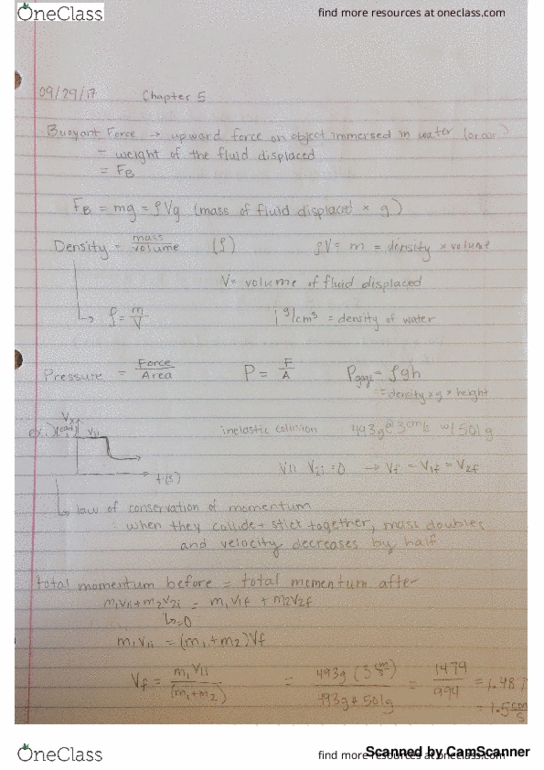 OneClass
find more resources at oneclass.com
09/29/17 Chapter 5
Buoyant Force → upward force on object immersed in water (or air)
= weight of the fluid displaced
= FB
FB = mg = ρVg (mass of fluid displaced × g)
Density = mass/volume (ρ) ρV = m = density × volume
V = volume of fluid displaced
↳ ρ = m/V 1 g/cm³ = density of water
Pressure = Force/Area P = F/A Pgage = ρgh
= density × g × height
Vx
V1i inelastic collision 493g @ 3 cm/s w/ 501g
t(s) V1i V2i = 0 → Vf = V1f = V2f
↳ law of conservation of momentum
when they collide + stick together, mass doubles
and velocity decreases by half
total momentum before = total momentum after
m1v1i + m2v2i = m1v1f + m2v2f
↳ = 0
m1v1i = (m1+m2)Vf
Vf = m1v1i/(m1+m2) = 493g (3 cm/s)/493g + 501g = 1479/994 = 1.487
= 1.5 cm/s
OneClass
find more resources at oneclass.com
Scanned by CamScanner